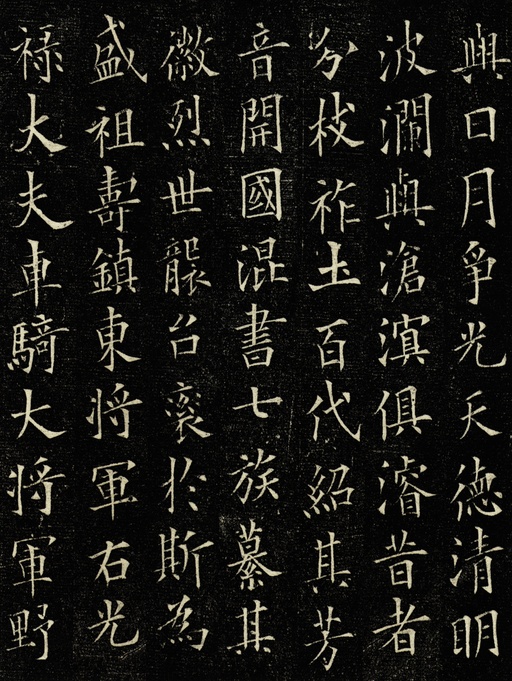 與日月爭光天德清明
波瀾與滄溟俱濬昔者
分枝祚土百代紹其芳
音開國混書七族纂其
徽烈世襲台袞於斯為
盛祖壽鎮東將軍右光
祿大夫車騎大將軍野